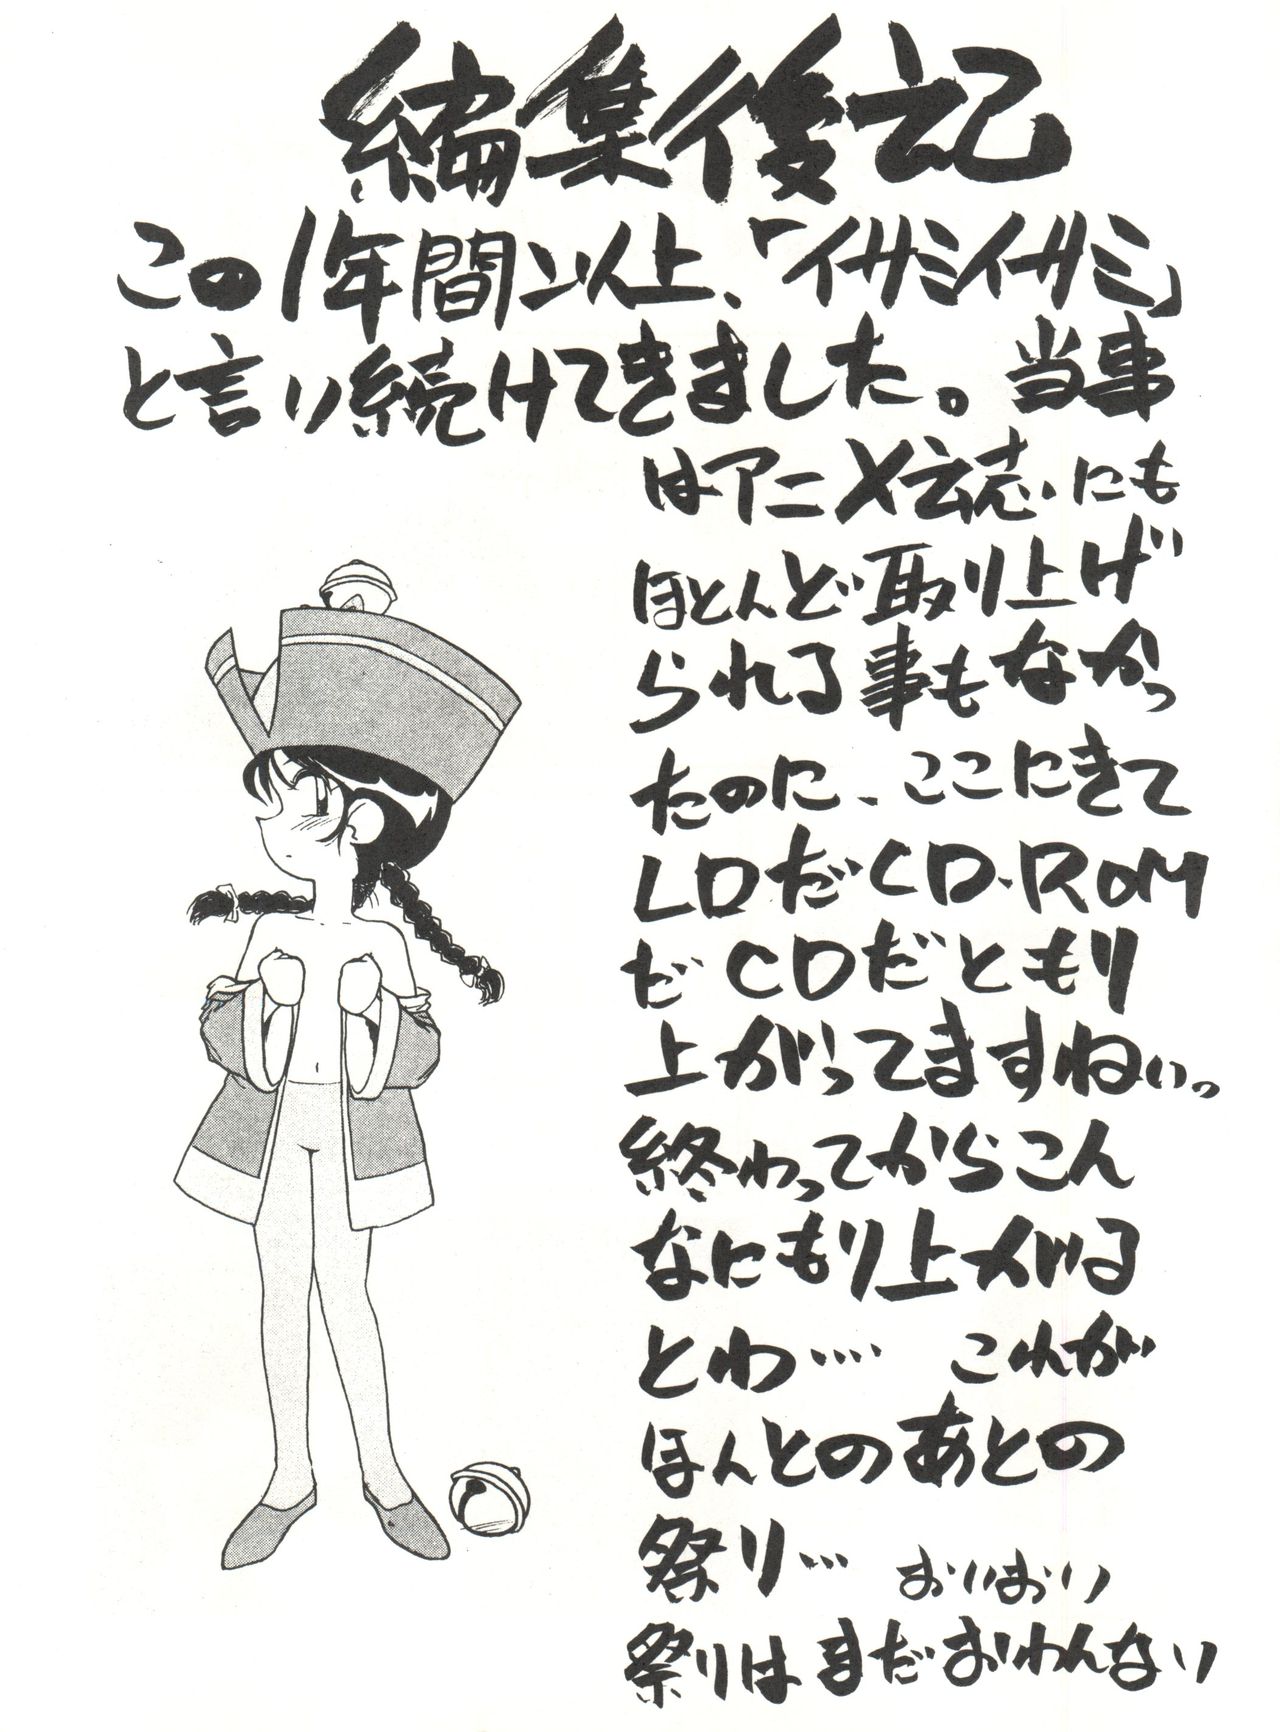 編集後記
この1年間以上、「イサミイサミ」
と言い続けてきました。当事
はアニメ誌にも
ほとんど取り上げ
られる事もなかっ
たのに、ここにきて
LDだCD-ROM
だCDだともり
上がってますねぃっ
終わってからこん
なにもり上がる
とわ…. これが
ほんとのあとの
祭り… おいおい
祭りはまだおわんない